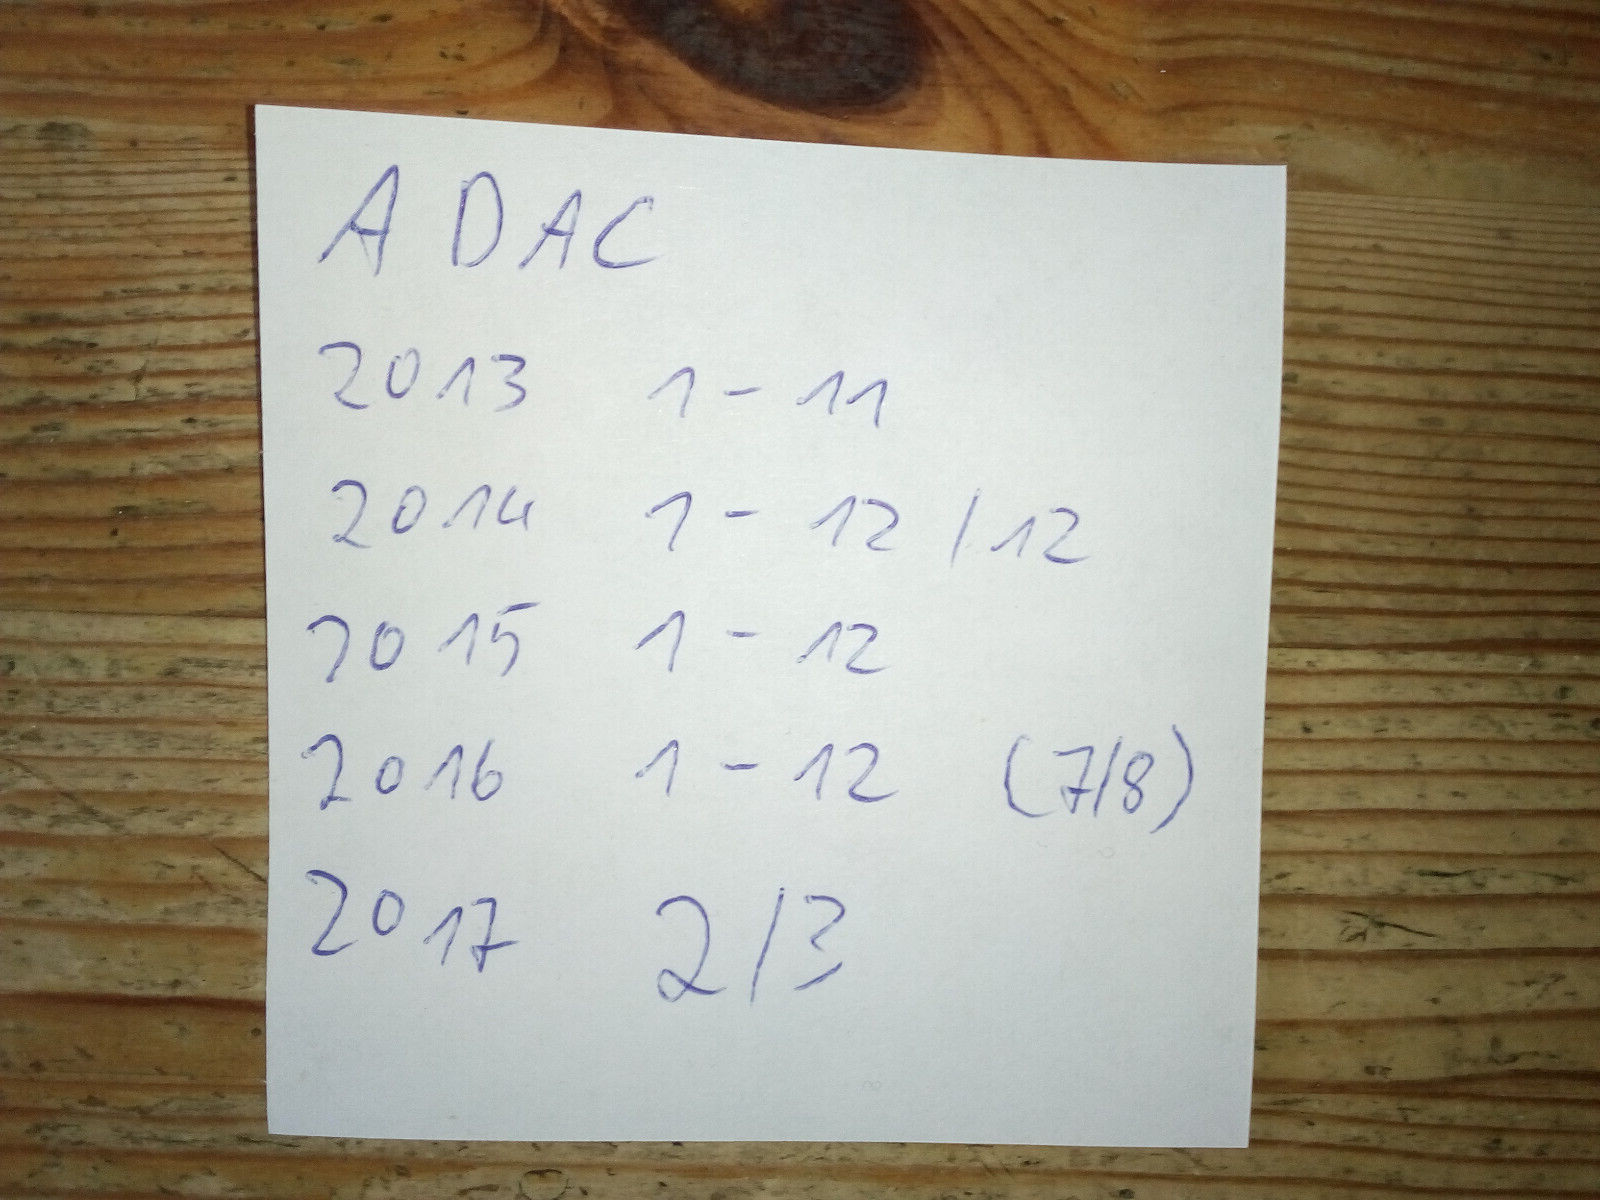 ADAC
2013 1 - 11
2014 1 - 12 / 12
2015 1 - 12
2016 1 - 12 (7/8)
2017 2/3